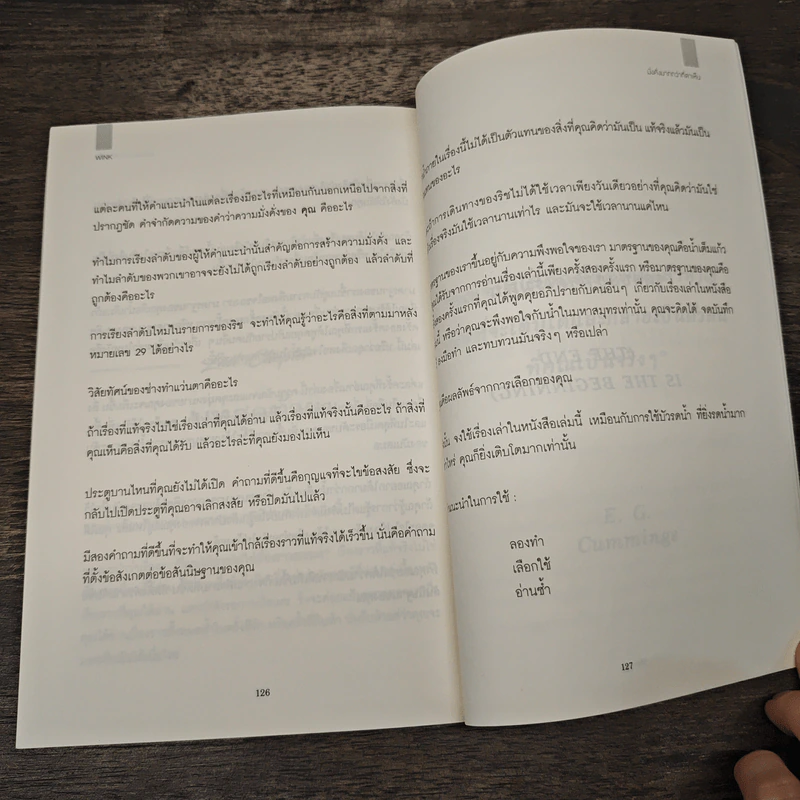 WINK
แต่ละคนที่ให้คำแนะนำในแต่ละเรื่องมีอะไรที่เหมือนกันนอกเหนือไปจากสิ่งที่
ปรากฏชัด คำจำกัดความของคำว่าความมั่งคั่งของ คุณ คืออะไร
ทำไมการเรียงลำดับของผู้ให้คำแนะนำนั้นสำคัญต่อการสร้างความมั่งคั่ง และ
ทำไมลำดับของพวกเขาอาจจะยังไม่ได้ถูกเรียงลำดับอย่างถูกต้อง แล้วลำดับที่
ถูกต้องคืออะไร
การเรียงลำดับใหม่ในรายการของริช จะทำให้คุณรู้ว่าอะไรคือสิ่งที่ตามมาหลัง
หมายเลข 29 ได้อย่างไร
วิสัยทัศน์ของช่างทำแว่นตาคืออะไร
ถ้าเรื่องที่แท้จริงไม่ใช่เรื่องเล่าที่คุณได้อ่าน แล้วเรื่องที่แท้จริงนั้นคืออะไร ถ้าสิ่งที่
คุณเห็นคือสิ่งที่คุณได้รับ แล้วอะไรล่ะที่คุณยังมองไม่เห็น
ประตูบานไหนที่คุณยังไม่ได้เปิด คำถามที่ดีขึ้นคือกุญแจที่จะไขข้อสงสัย ซึ่งจะ
กลับไปเปิดประตูที่คุณอาจเลิกสงสัย หรือปิดมันไปแล้ว
มีสองคำถามที่ดีขึ้นที่จะทำให้คุณเข้าใกล้เรื่องราวที่แท้จริงได้เร็วขึ้น นั่นคือคำถาม
ที่ตั้งข้อสังเกตต่อข้อสันนิษฐานของคุณ
126
มั่งคั่งมากกว่าที่ตาเห็น
ภายในเรื่องนี้ไม่ได้เป็นตัวแทนของสิ่งที่คุณคิดว่ามันเป็น แท้จริงแล้วมันเป็น
ของอะไร
การเดินทางของริชไม่ได้ใช้เวลาเพียงวันเดียวอย่างที่คุณคิดว่ามันใช่
เรื่องจริงมันใช้เวลานานเท่าไร และมันจะใช้เวลานานแค่ไหน
ฐานของเราขึ้นอยู่กับความพึงพอใจของเรา มาตรฐานของคุณคือน้ำเต็มแก้ว
ได้รับจากการอ่านเรื่องเล่านี้เพียงครั้งสองครั้งแรก หรือมาตรฐานของคุณคือ
สองครั้งแรกที่คุณได้พูดคุยอภิปรายกับคนอื่นๆ เกี่ยวกับเรื่องเล่าในหนังสือ
นี้ หรือว่าคุณจะพึงพอใจกับน้ำในมหาสมุทรเท่านั้น คุณจะคิดได้ จดบันทึก
ลงมือทำ และทบทวนมันจริงๆ หรือเปล่า
คือผลลัพธ์จากการเลือกของคุณ
นั้น จงใช้เรื่องเล่าในหนังสือเล่มนี้ เหมือนกับการใช้บัวรดน้ำ ที่ยิ่งรดน้ำมาก
ไหร่ คุณก็ยิ่งเติบโตมากเท่านั้น
แนะนำในการใช้ :
ลองทำ
เลือกใช้
อ่านซ้ำ
127